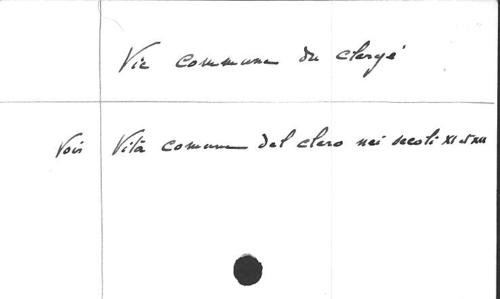 Vie commune du clergé
Voir Vita comune del clero nei secoli XI et XII